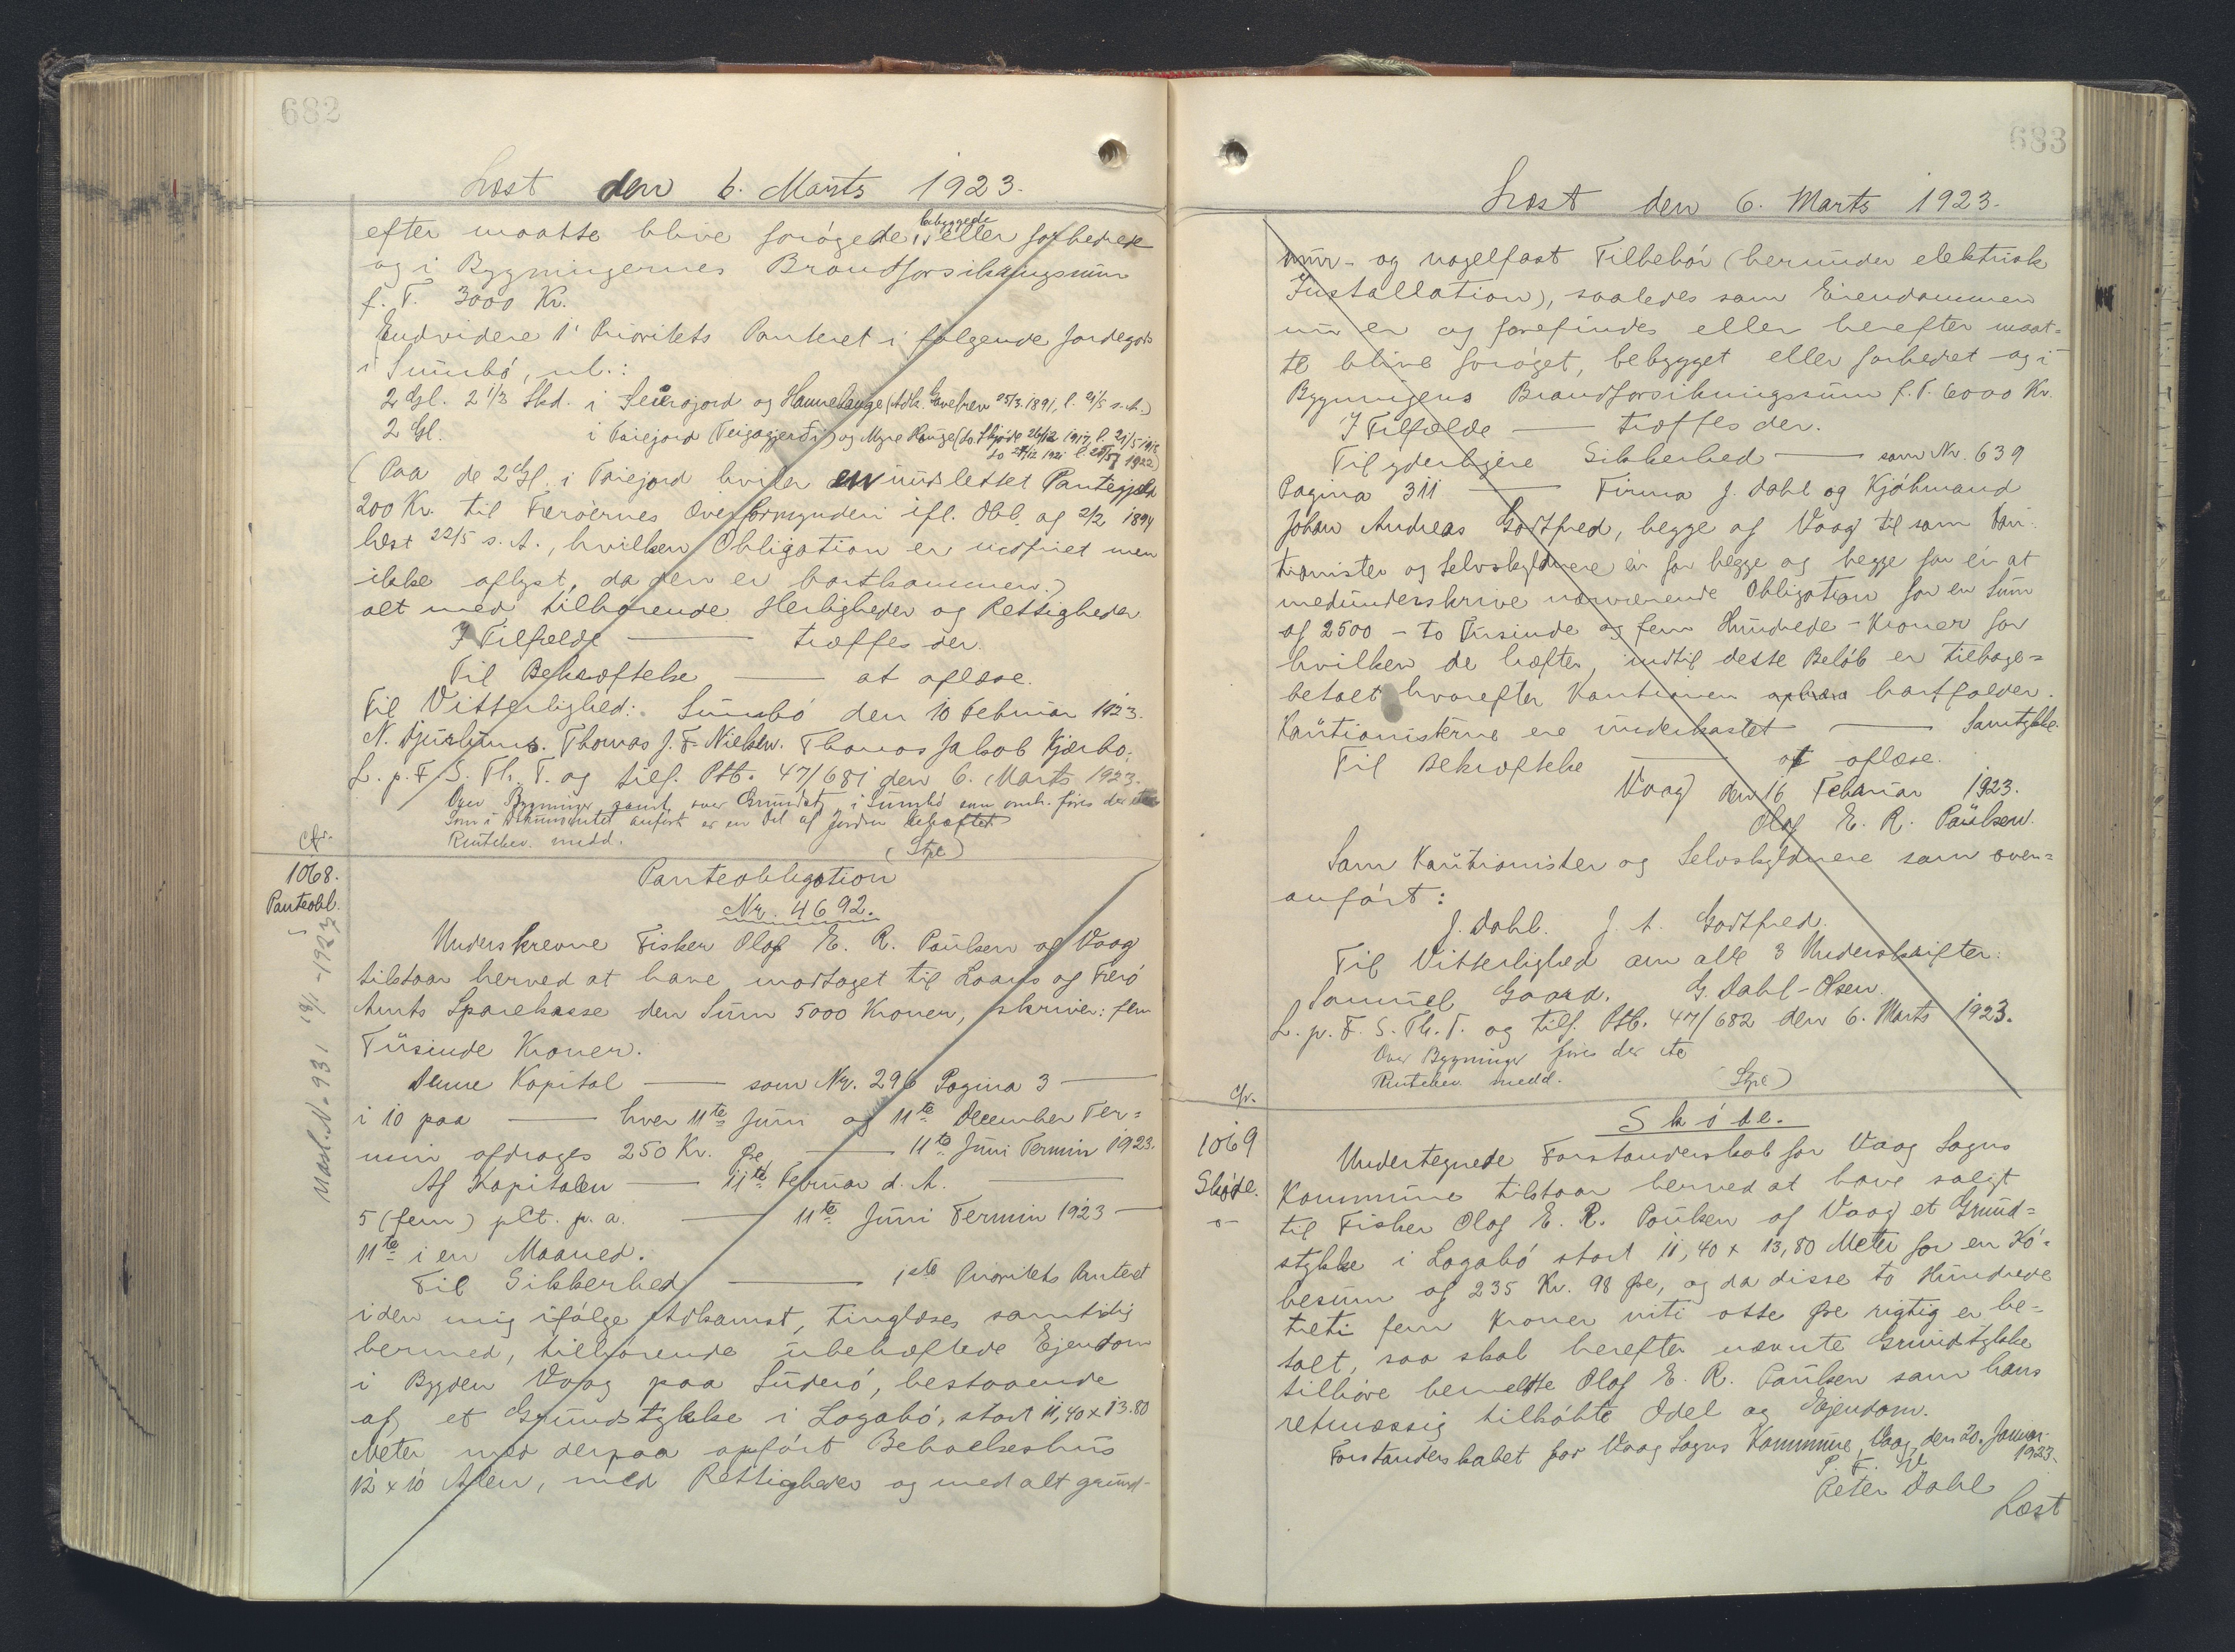 682
Læst den 6. Marts 1923.
efter maatte blive forøgede, bebyggede eller forbedrede
og i Bygningernes Brandforsikringssum
f. T. 3000 Kr.
Endvidere 1' Prioritets Panteret i følgende Jordegods
i Sumbø, nl.:
2 Gl. 2 1/3 Skd. i Seurojord og Hannehauge (Adk. Gavebrev 25/3 1891, l. 21/5 s. A.)
2 Gl. i Tøiejord (Teigagjerði) og Myre Hauge (do. Skjøde 26/12 1917, l. 21/5 1918
do 27/12 1921 l. 28/57 1922)
(Paa de 2 Gl. i Tøiejord hviler en uudslettet Pantegjæld
200 Kr. til Færøernes Overformynderi ifl. Obl. af 2/2 1894
læst 22/5 s. A., hvilken Obligation er indfriet men
ikke aflyst, da den er bortkommen.)
alt med tilhørende Herligheder og Rettigheder
I Tilfælde —— træffes der.
Til Bekræftelse —— at aflæse.
Til Vitterlighed: Sumbø den 10 Februar 1923.
N. Djurhuus. Thomas J. F. Nielsen. Thomas Jakob Kjærbo.
L. p. F. S. Th. T. og tilf. Ptb. 47/681 den 6. Marts 1923.
Over Bygninger samt over Grundst. i Sumbø som omh. føres der etc
Som i Dokumentet anført er en Del af Jorden behæftet
Rentebev. medd.
(Stpl)
cfr.
1068.
Panteobl.
Masl. N. 931 18/1 - 1927
Panteobligation
Nr. 4692.
Underskrevne Fisker Olaf E. R. Poulsen af Vaag
tilstaar herved at have modtaget til Laans af Færø
Amts Sparekasse den Sum 5000 Kroner, skriver: fem
Tusinde Kroner.
Denne Kapital —— som Nr. 296 Pagina 3 ——
i 10 paa —— hver 11te Juni og 11te December Ter=
min afdrages 250 Kr. Øre —— 11te Juni Termin 1923.
Af Kapitalen —— 11te Februar d. A. ——
5 (fem) pCt. p. a. —— 11te Juni Termin 1923 —
11te i en Maaned.
Til Sikkerhed —— 1ste Prioritets Panteret
i den mig ifølge Adkomst, tinglæses samtidig
hermed, tilhørende ubehæftede Ejendom
i Bygden Vaag paa Suderø, bestaaende
af et Grundstykke i Lagabø, stort 11,40 x 13.80
Meter med derpaa opført Beboelseshus
12 x 10 Alen, med Rettigheder og med alt grund-
683
Læst den 6. Marts 1923.
mur- og nagelfast Tilbehør (herunder elektrisk
Installation), saaledes som Eiendommen
nu er og forefindes eller herefter maat=
te blive forøget, bebygget eller forbedret og i
Bygnigens Brandforsikringssum f. T. 6000 Kr.
I Tilfælde —— træffes der.
Til yderligere Sikkerhed —— som Nr. 639
Pagina 311 —— Firma J. Dahl og Kjøbmand
Johan Andreas Godtfred, begge af Vaag til som Kau-
tionister og Selvskyldnere én for begge og begge for én at
medunderskrive nærværende Obligation for en Sum
af 2500 - to Tusinde og fem Hundrede - Kroner for
hvilken de hæfter, indtil dette Beløb er tilbage=
betalt hvorefter Kautionen bortfalder.
Kautionisterne ere underkastet —— Samtykke.
Til Bekræftelse —— at aflæse.
Vaag den 16 Februar 1923.
Olaf E. R. Paulsen.
Som Kautionister og Selvskyldnere som oven=
anført:
J. Dahl. J. A. Godtfred.
Til Vitterlighed om alle 3 Underskrifter:
Samuel Gaard. G. Dahl-Olsen.
L. p. F. S. Th. T. og tilf. Ptb. 47/682 den 6. Marts 1923.
Over Bygninger føres der etc
Rentebev. medd. (Stpl)
cfr.
1069
Skøde.
-o-
Skøde.
Undertegnede Forstanderskab for Vaag Sogns
Kommune tilstaar herved at have solgt
til Fisker Olaf E. R. Poulsen af Vaag et Grund=
stykke i Lagabø stort 11,40 x 13,80 Meter for en Kø=
besum af 235 Kr. 98 Øre, og da disse to Hundrede
treti fem Kroner niti otte Øre rigtig er be=
talt, saa skal herefter nævnte Grundstykke
tilhøre bemeldte Olaf E. R. Paulsen som hans
retmæssig tilkøbte Odel og Ejendom.
Forstanderskabet for Vaag Sogns Kommune, Vaag, den 20. Januar
1923.
P. F. V.
Peter Dahl
Læst